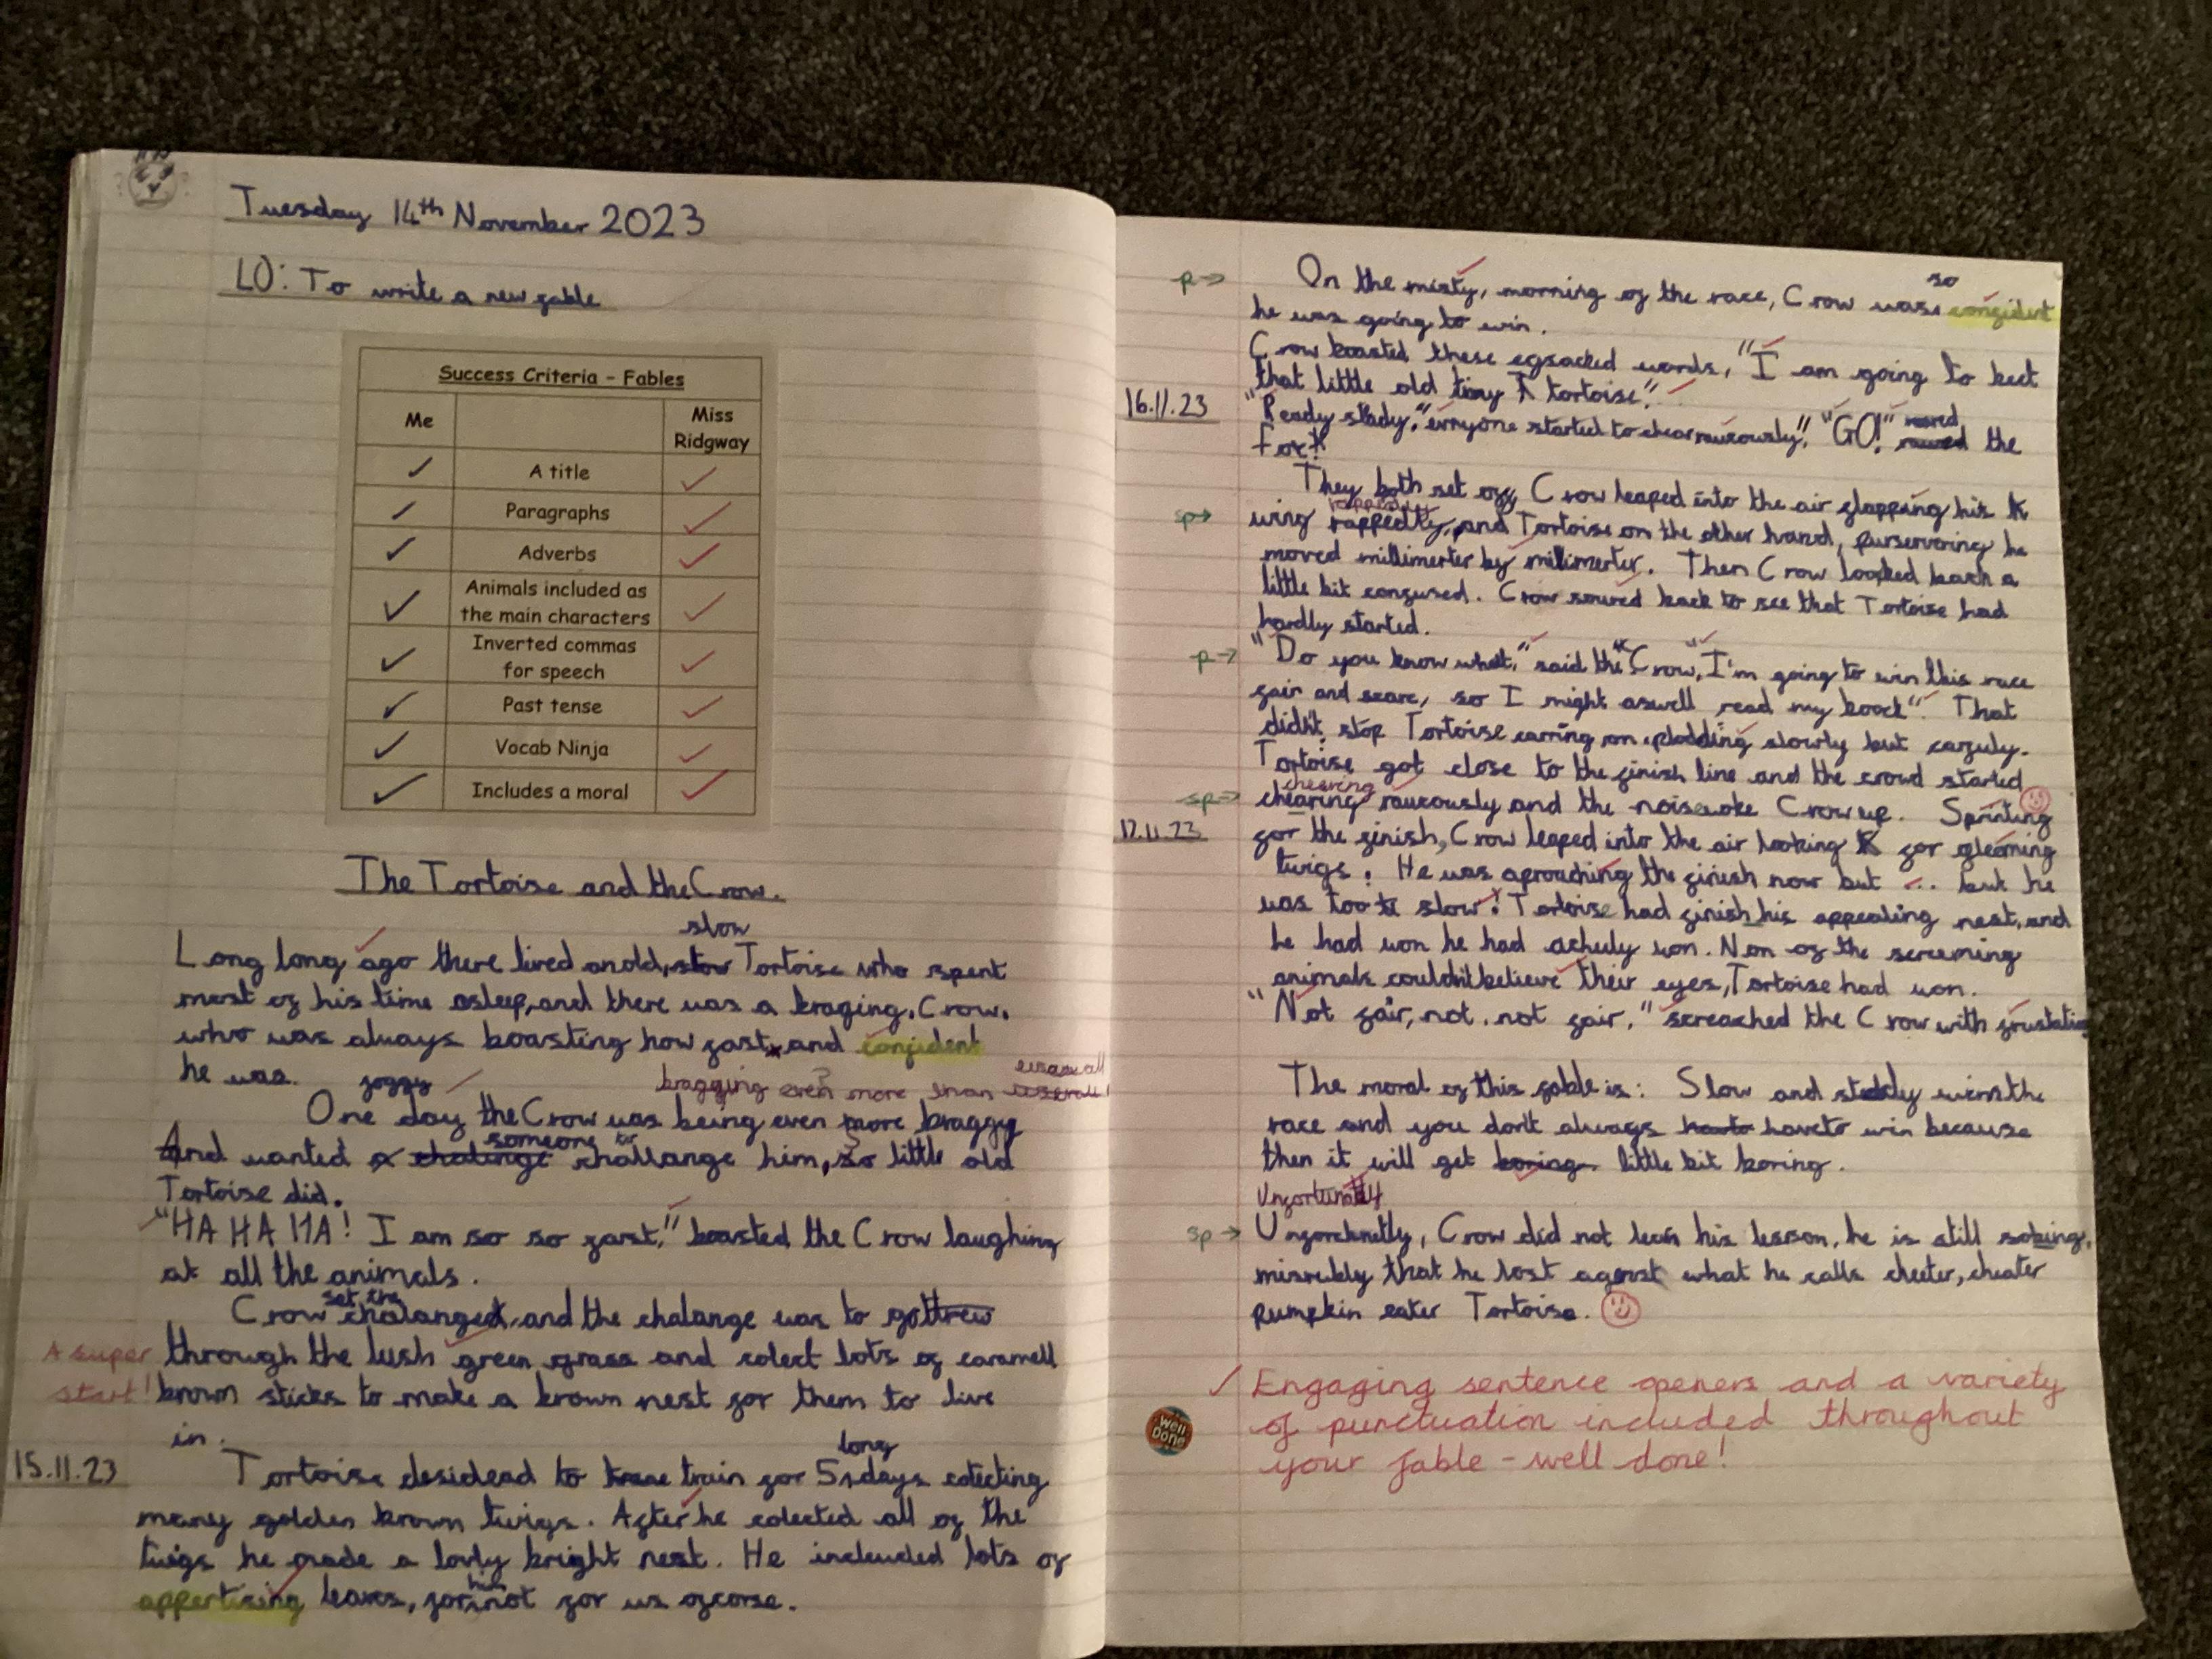 Tuesday 14th November 2023
LO: To write a new fable
Success Criteria – Fables
Me
Miss Ridgway
A title
Paragraphs
Adverbs
Animals included as
the main characters
Inverted commas
for speech
Past tense
Vocab Ninja
Includes a moral
The Tortoise and the Crow.
slow
Long long ago there lived an old, slow Tortoise who spent
most of his time asleep, and there was a braging, Crow,
who was always boasting how fast, and confident
he was.
foggy
bragging even more than
One day the Crow was being even more braggy
And wanted a chalenge someone to challange him, so little old
Tortoise did.
"HA HA HA! I am so so fast," boasted the Crow laughing
at all the animals.
set the
Crow chalanged, and the chalange was to go
through the lush green grass and colect lots of caramell
A super
start!
brown sticks to make a brown nest for them to live
in.
15.11.23
long
Tortoise desidead to train for 5 days colecting
many golden brown twigs. After he colected all of the
twigs he made a lovly bright nest. He included lots of
appertising leaves, for him not for us ofcorse.
p→
so
On the misty, morning of the race, Crow was confident
he was going to win.
Crow boasted these egsacked words, "I am going to beet
that little old tiny tortoise".
16.11.23
"Ready stady," evryone started to chear raucously", "GO!" roared the
Fox!
They both set off, Crow leaped into the air flapping his
sp→
wing rappedly, and Tortoise on the other hand, purservering he
moved millimerter by milimerter. Then Crow looked back a
little bit confused. Crow soured back to see that Tortoise had
hardly started.
p→
"Do you know what," said the Crow, "I'm going to win this race
fair and scare, so I might aswell read my boock". That
didn't stop Tortoise carring on, plodding slowly but carfuly.
Tortoise got close to the finish line and the crowd started
cheering
sp→
chearing raucously and the noise woke Crow up. Sprinting
17.11.23
for the finish, Crow leaped into the air looking for gleaming
twigs. He was aproaching the finish now but ... but he
was too slow! Tortoise had finish his appealing nest, and
he had won he had achuly won. Non of the screeming
animals couldn't believe their eyes, Tortoise had won.
"Not fair, not, not fair," screached the Crow with frustation
The moral of this fable is: Slow and steddy wins the
race and you don't always have to win because
then it will get boring little bit boring.
Unfortunatly
sp→
Unforchnetly, Crow did not lean his lesson, he is still sobing,
misrubly that he lost agenst what he calls cheeter, cheater
pumpkin eater Tortoise.
Engaging sentence openers and a variety
of punctuation included throughout
your fable – well done!
Well
Done